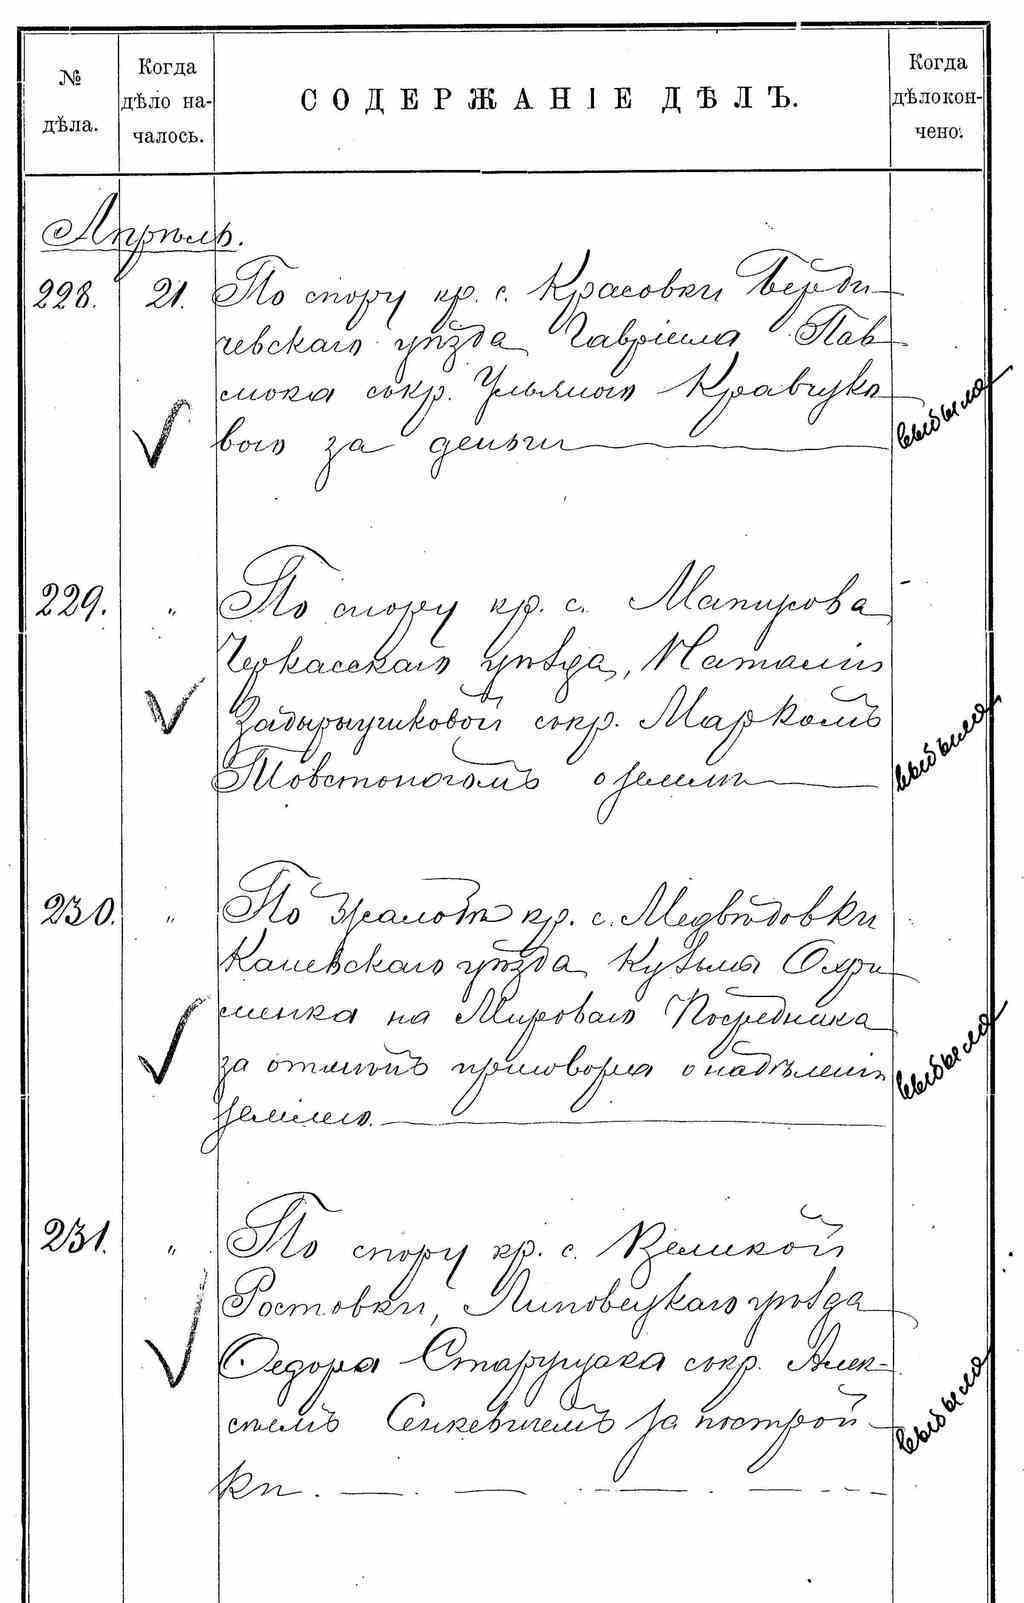 № дѣла.
Когда дѣло на-
чалось.
СОДЕРЖАНІЕ ДѢЛЪ.
Когда дѣло кон-
чено.
Апрѣль.
228. 21. По спору кр. с. Красовки Берди-
чевскаго уѣзда Гавріила Пав
люка съ кр. Ульяною Кравчуко
вою за деньги
выбыло
229. " По спору кр. с.
Черкасскаго уѣзда, Наталіи
съ кр. Маркомъ
Товстоногомъ о землѣ
выбыло
230. " По жалобѣ кр. с. Медвѣдовки
Каневскаго уѣзда Кузьмы Охри
менка на Мироваго Посредника
за отмѣну приговора о надѣленіи
землею.
выбыло
231. " По спору кр. с. Великой
Ростовки, Липовецкаго уѣзда
Ѳедора съ кр. Алек-
сѣемъ Сенкевичемъ за построй-
ки.
выбыло